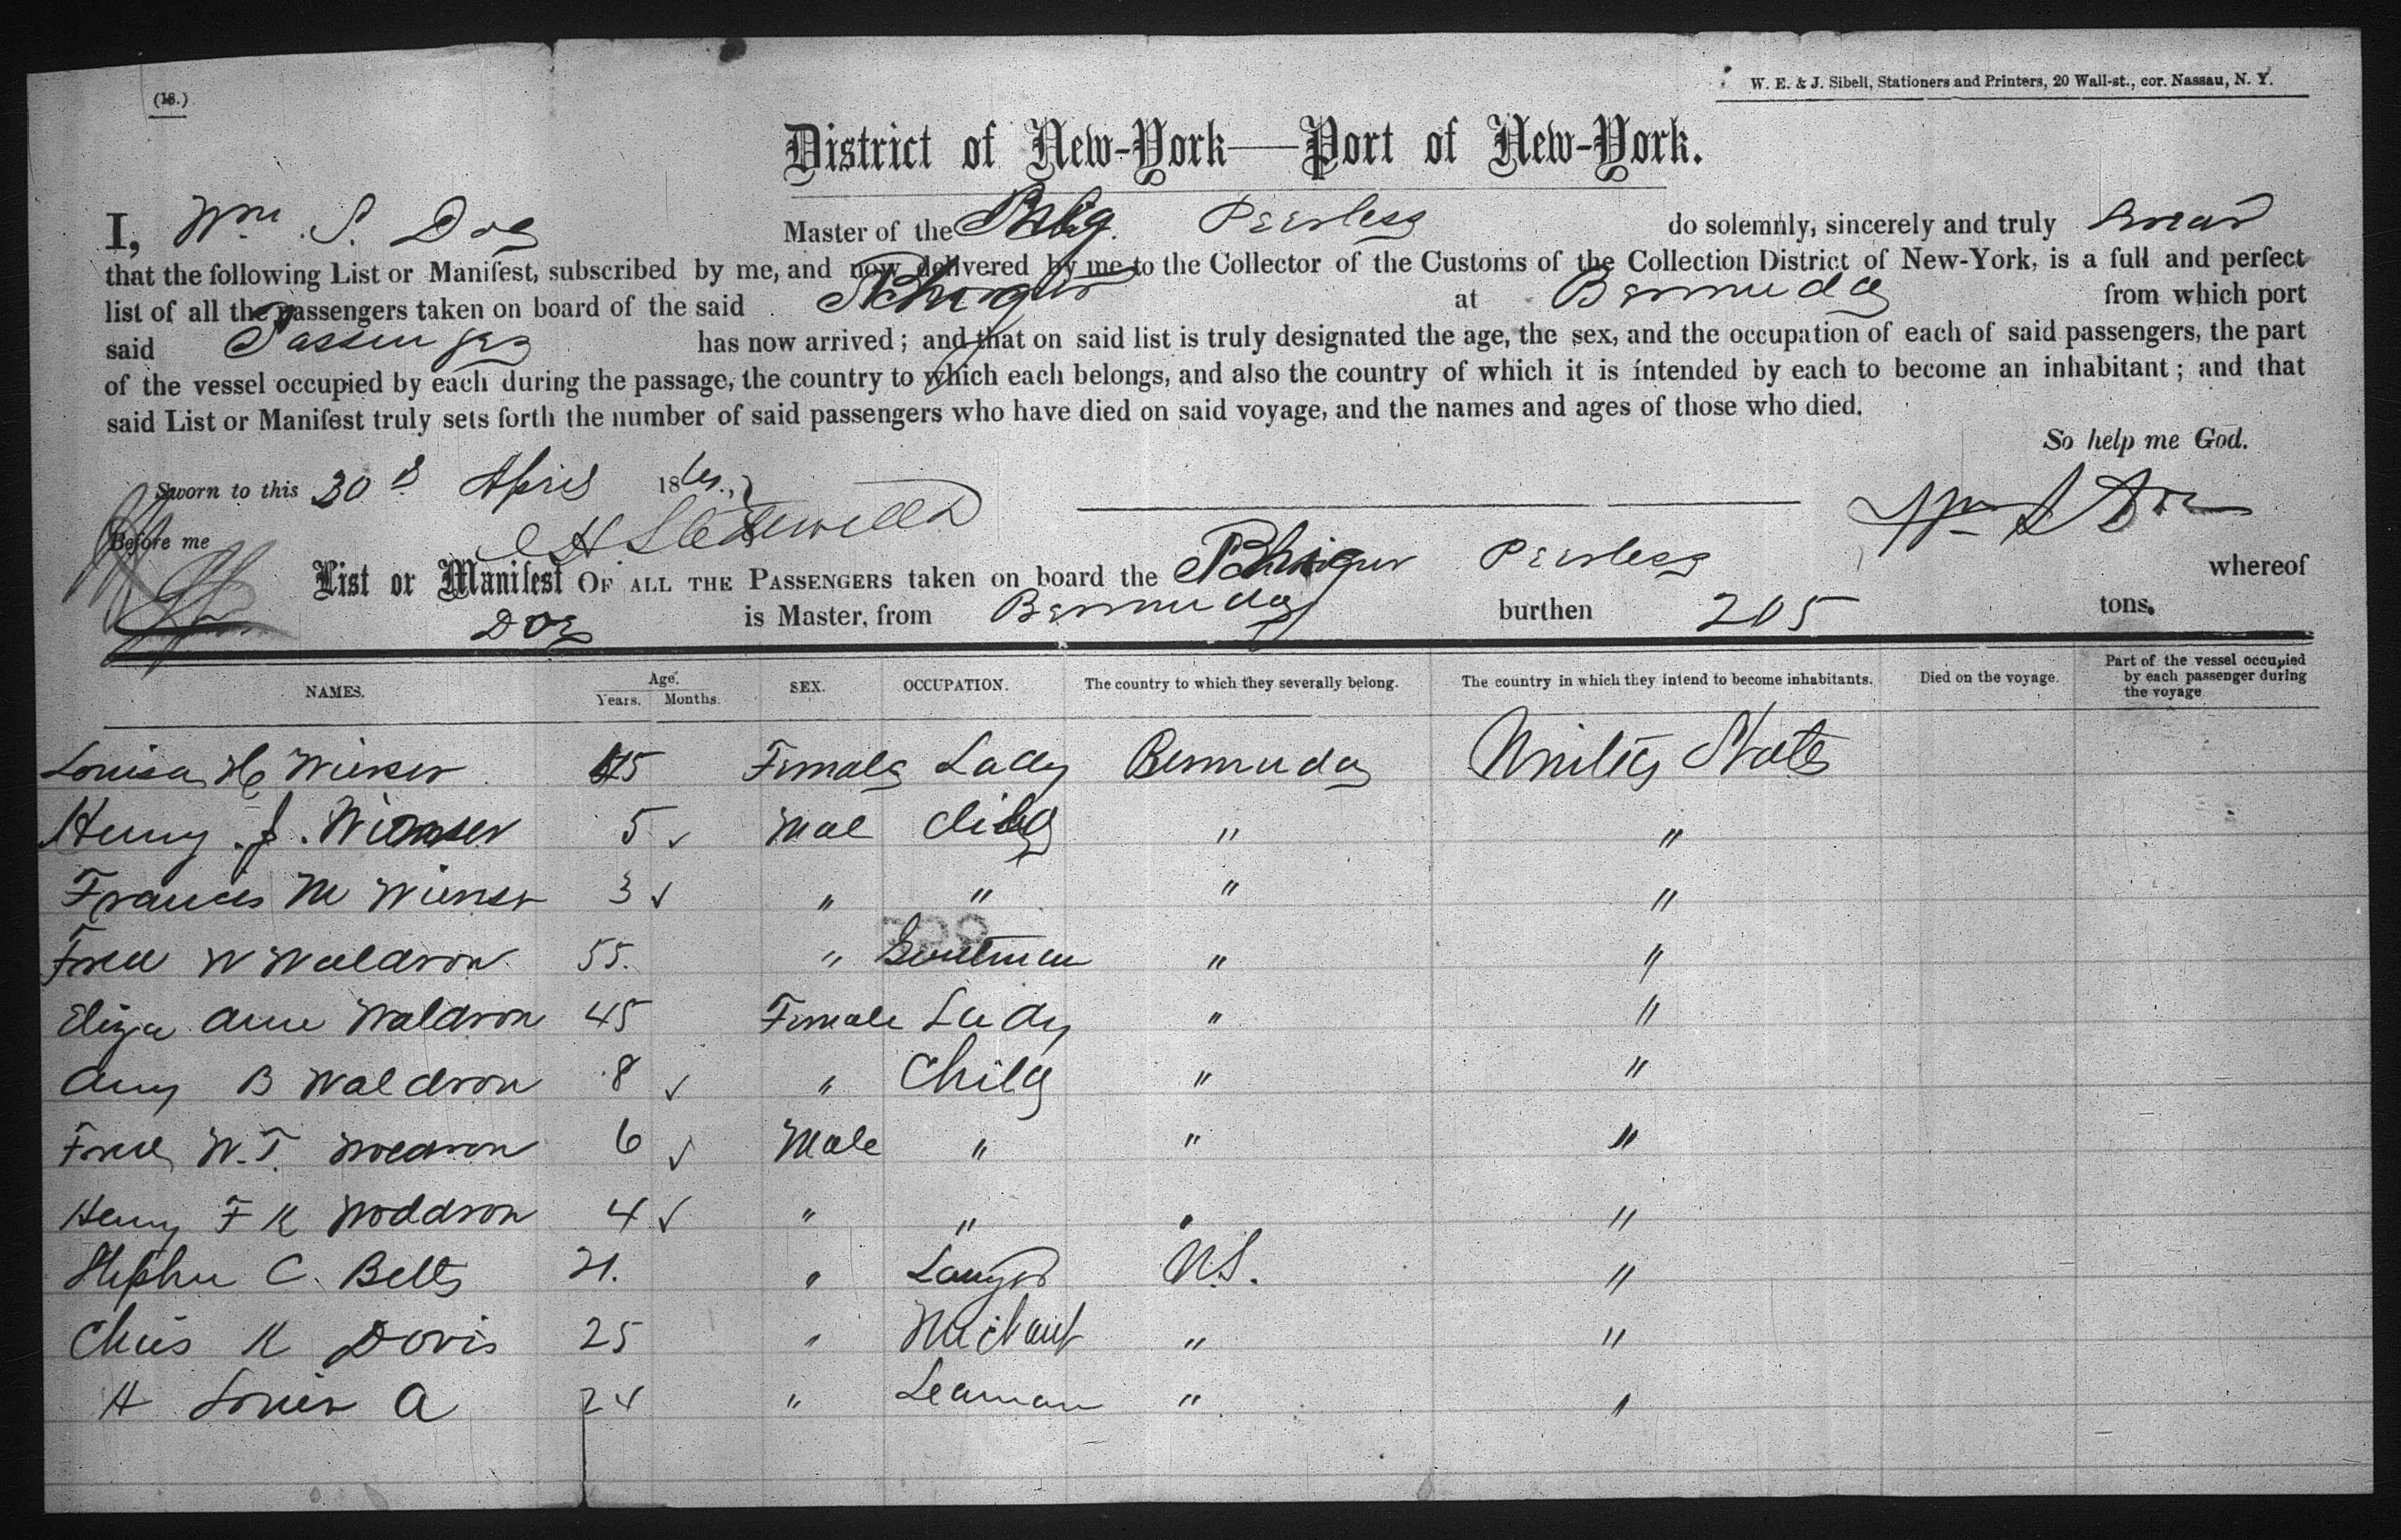 (18.)
W. E. & J. Sibell, Stationers and Printers, 20 Wall-st., cor. Nassau, N. Y.
District of New-York—Port of New-York.
I, Wm S. Doe Master of the Brig Peerless do solemnly, sincerely and truly swear
that the following List or Manifest, subscribed by me, and now delivered by me to the Collector of the Customs of the Collection District of New-York, is a full and perfect
list of all the passengers taken on board of the said at Bermuda from which port
said Passenger has now arrived; and that on said list is truly designated the age, the sex, and the occupation of each of said passengers, the part
of the vessel occupied by each during the passage, the country to which each belongs, and also the country of which it is intended by each to become an inhabitant; and that
said List or Manifest truly sets forth the number of said passengers who have died on said voyage, and the names and ages of those who died.
So help me God.
Sworn to this 30 April 18
Wm S Doe
Before me
List or Manifest OF ALL THE PASSENGERS taken on board the Peerless whereof
Doe is Master, from Bermuda burthen 205 tons.
NAMES. Age. Years. Months. SEX. OCCUPATION. The country to which they severally belong. The country in which they intend to become inhabitants. Died on the voyage. Part of the vessel occupied by each passenger during the voyage
Louisa H 45 Female Lady Bermuda United States
Henry J. 5 ✓ Mal Child " "
Frances M 3 ✓ " " " "
Fred W Waldron 55. " Gentman " "
Eliza Ann Waldron 45 Female Lady " "
Amy B Waldron 8 ✓ " Child " "
Fred W. T. 6 ✓ Male " " "
Henry F K Woddron 4 ✓ " " " "
Stephen C. Betts 21. " Lawyer U.S. "
Chas K Davis 25 " " "
H Louis A 24 " Seaman " "